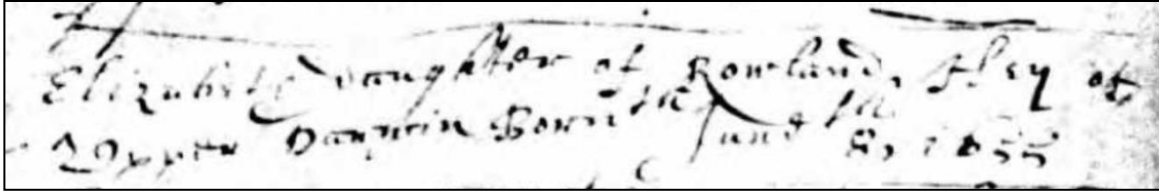 Elizabeth Daughter of Rowland Hey of
Upper Born the June the 8, 1655